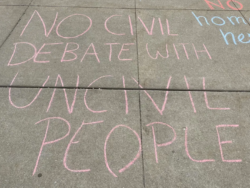 NO CIVIL
DEBATE WITH
UNCIVIL
PEOPLE
NO
hom
he